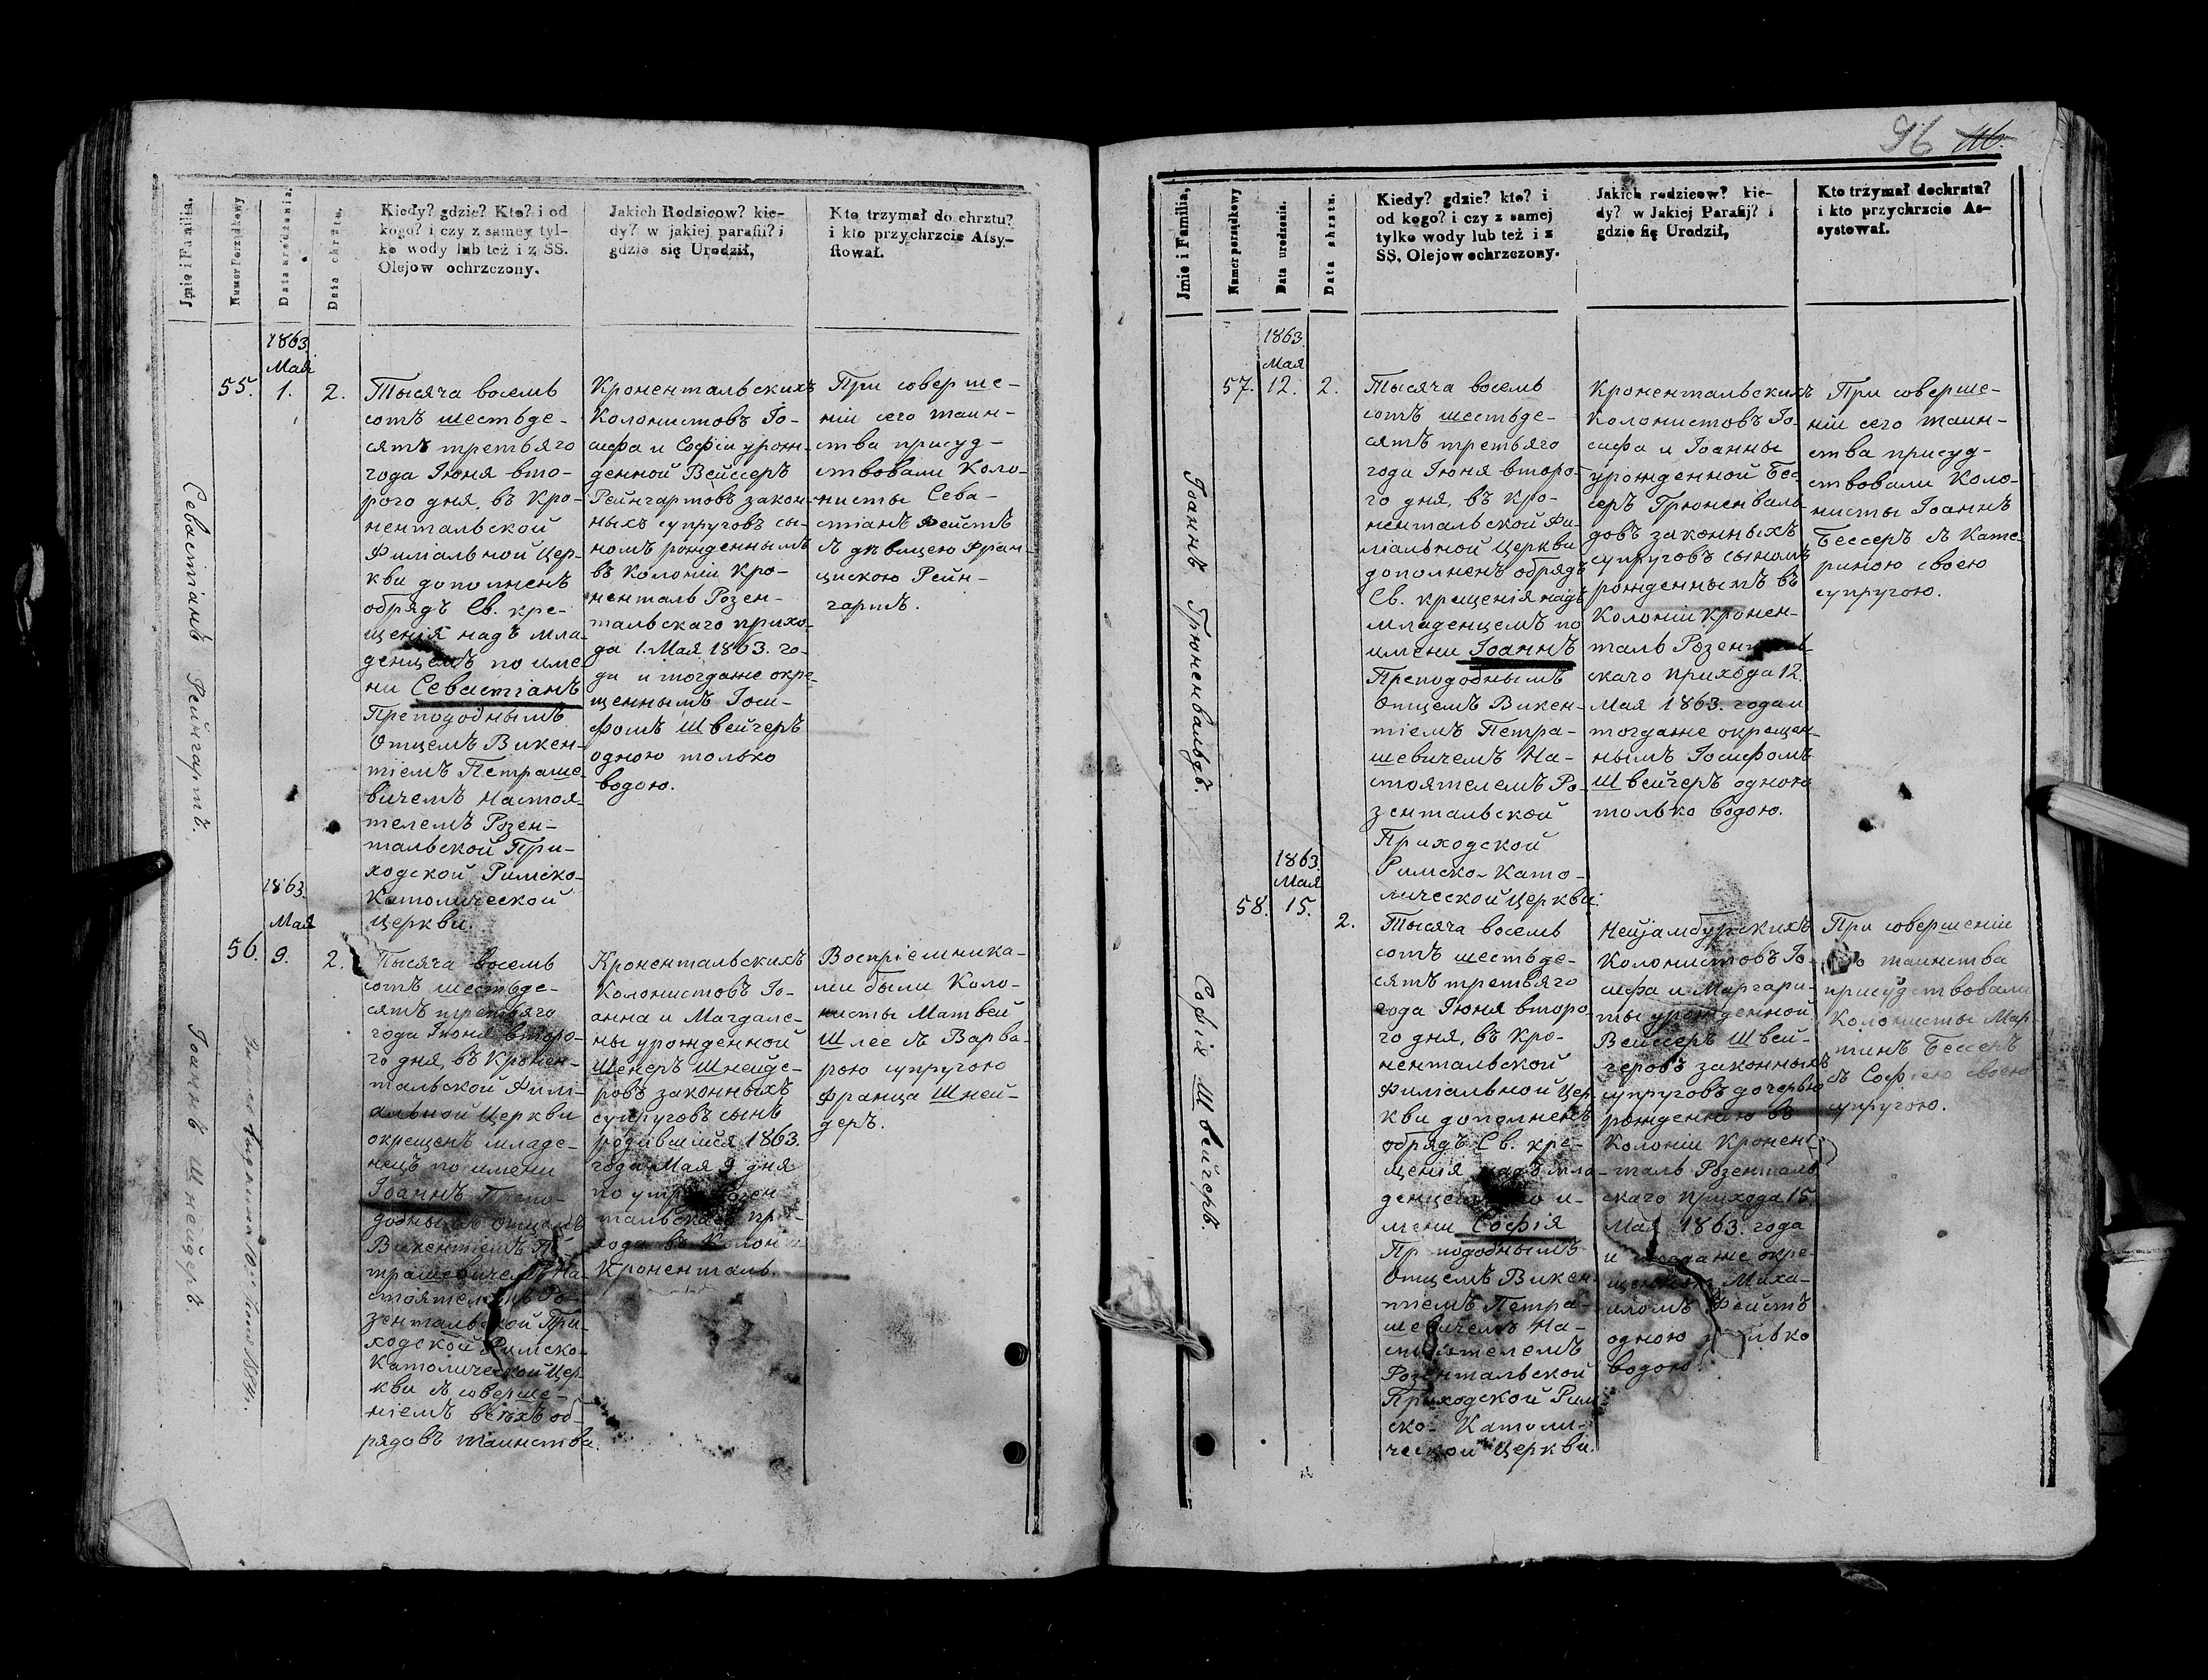 Jmie i Familia.
Numer Porządkowy
Data urodzenia.
Data chrztu.
Kiedy? gdzie? Kto? i od
kogo? i czy z samey tyl-
ko wody lub też i z SS.
Olejow ochrzczony.
Jakich Rodzicow? kie-
dy? w jakiej parafii? i
gdzie się Urodził,
Kto trzymał do chrztu?
i kto przychrzcie Afsy-
ftował.
Севастіанъ Рейнгартъ.
1863
Мая
55.
1.
2.
Тысяча восемь
сотъ шестьде-
сятъ третьяго
года Іюня вто-
рого дня, въ Кро-
нентальской
Филіальной Цер-
кви дополненъ
обрядъ Св. кре-
щенія надъ мла-
денцемъ по име-
ни Севастіанъ
Преподобнымъ
Отцемъ Викен-
тіемъ Петраше-
вичемъ Настоя-
телемъ Розен-
тальской При-
ходской Римско-
Католической
Церкви.
Кронентальскихъ
Колонистовъ Іо-
сифа и Софіи урож-
денной Вейссеръ
Рейнгартовъ закон-
ныхъ супруговъ сы-
номъ рожденнымъ
въ Колоніи Кро-
ненталь Розен-
тальскаго прихо-
да 1. Мая 1863. го-
да и тогдаже окре-
щеннымъ Іоси-
фомъ Швейгеръ
одною только
водою.
При соверше-
ніи сего таин-
ства присуд-
ствовали Коло-
нисты Сева-
стіанъ Фейстъ
съ дѣвицею Фран-
цискою Рейн-
гартъ.
Іоаннъ Шнейдеръ.
1863
Мая
56.
9.
2.
Тысяча восемь
сотъ шестьде-
сятъ третьяго
года Іюня второ-
го дня, въ Кронен-
тальской Филі-
альной Церкви
окрещенъ младе-
нецъ по имени
Іоаннъ
Отцемъ
Викентіемъ Пе-
трашевичемъ На-
стоятелемъ Ро-
зентальской При-
ходской Римско-
Католической Цер-
кви съ соверше-
ніемъ всѣхъ об-
рядовъ таинства.
Кронентальскихъ
Колонистовъ Іо-
анна и Магдале-
ны урожденной
Шенеръ Шнейде-
ровъ законныхъ
супруговъ сынъ
родившійся 1863.
года Мая 9 дня
по утру Розен
тальскаго при-
хода въ Колоніи
Кроненталь.
Воспріемника-
ми были Коло-
нисты Матвей
Шлее съ Варва-
рою супругою
Франца Шней-
деръ.
96
Jmie i Familia,
Numer porządkowy
Data urodzenia.
Data chrztu.
Kiedy? gdzie? kto? i
od kogo? i czy z samej
tylko wody lub też i z
SS, Olejow ochrzczony.
Jakich rodzicow? kie-
dy? w Jakiej Parafij? i
gdzie fię Urodził,
Kto trzymał dochrztu?
i kto przychrzcie As-
systował.
Іоаннъ Грюненвальдъ.
1863.
Мая
57.
12.
2.
Тысяча восемь
сотъ шестьде-
сятъ третьяго
года Іюня второ-
го дня, въ Кро-
нентальской Фи-
ліальной Церкви
дополненъ обрядъ
Св. крещенія надъ
младенцемъ по
имени Іоаннъ
Преподобнымъ
Отцемъ Викен-
тіемъ Петра-
шевичемъ На-
стоятелемъ Ро-
зентальской
Приходской
Римско-Като-
лической Церкви.
Кронентальскихъ
Колонистовъ Іо-
сифа и Іоанны
урожденной Бес-
серъ Грюненваль-
довъ законныхъ
супруговъ сыномъ
рожденнымъ въ
Колоніи Кронен-
таль Розенталь
скаго прихода 12.
Мая 1863. года и
тогдаже окрещен-
нымъ Іосифомъ
Швейгеръ одною
только водою.
При соверше-
ніи сего таин-
ства присуд-
ствовали Коло-
нисты Іоаннъ
Бессеръ съ Кате-
риною своею
супругою.
Софія Швейгеръ.
1863.
Мая
58.
15.
2.
Тысяча восемь
сотъ шестьде-
сятъ третьяго
года Іюня второ-
го дня, въ Кро-
нентальской
Филіальной Цер-
кви дополненъ
обрядъ Св. кре-
щенія надъ мла-
денцемъ по и-
мени Софія
Преподобнымъ
Отцемъ Викен-
тіемъ Петра-
шевичемъ На-
стоятелемъ
Розентальской
Приходской Рим-
ско-Католи-
ческой Церкви.
Колонистовъ Іо-
сифа и Маргари-
ты урожденной
Вейссеръ Швей-
геровъ законныхъ
супруговъ дочерью
рожденною въ
Колоніи Кронен-
таль Розенталь
скаго прихода 15.
Мая 1863. года
и тогдаже окре-
Миха-
иломъ Фейстъ
одною только
водою.
При совершеніи
таинства
присудствовали
Колонисты Мар
тинъ Бессеръ
съ Софіею своею
супругою.